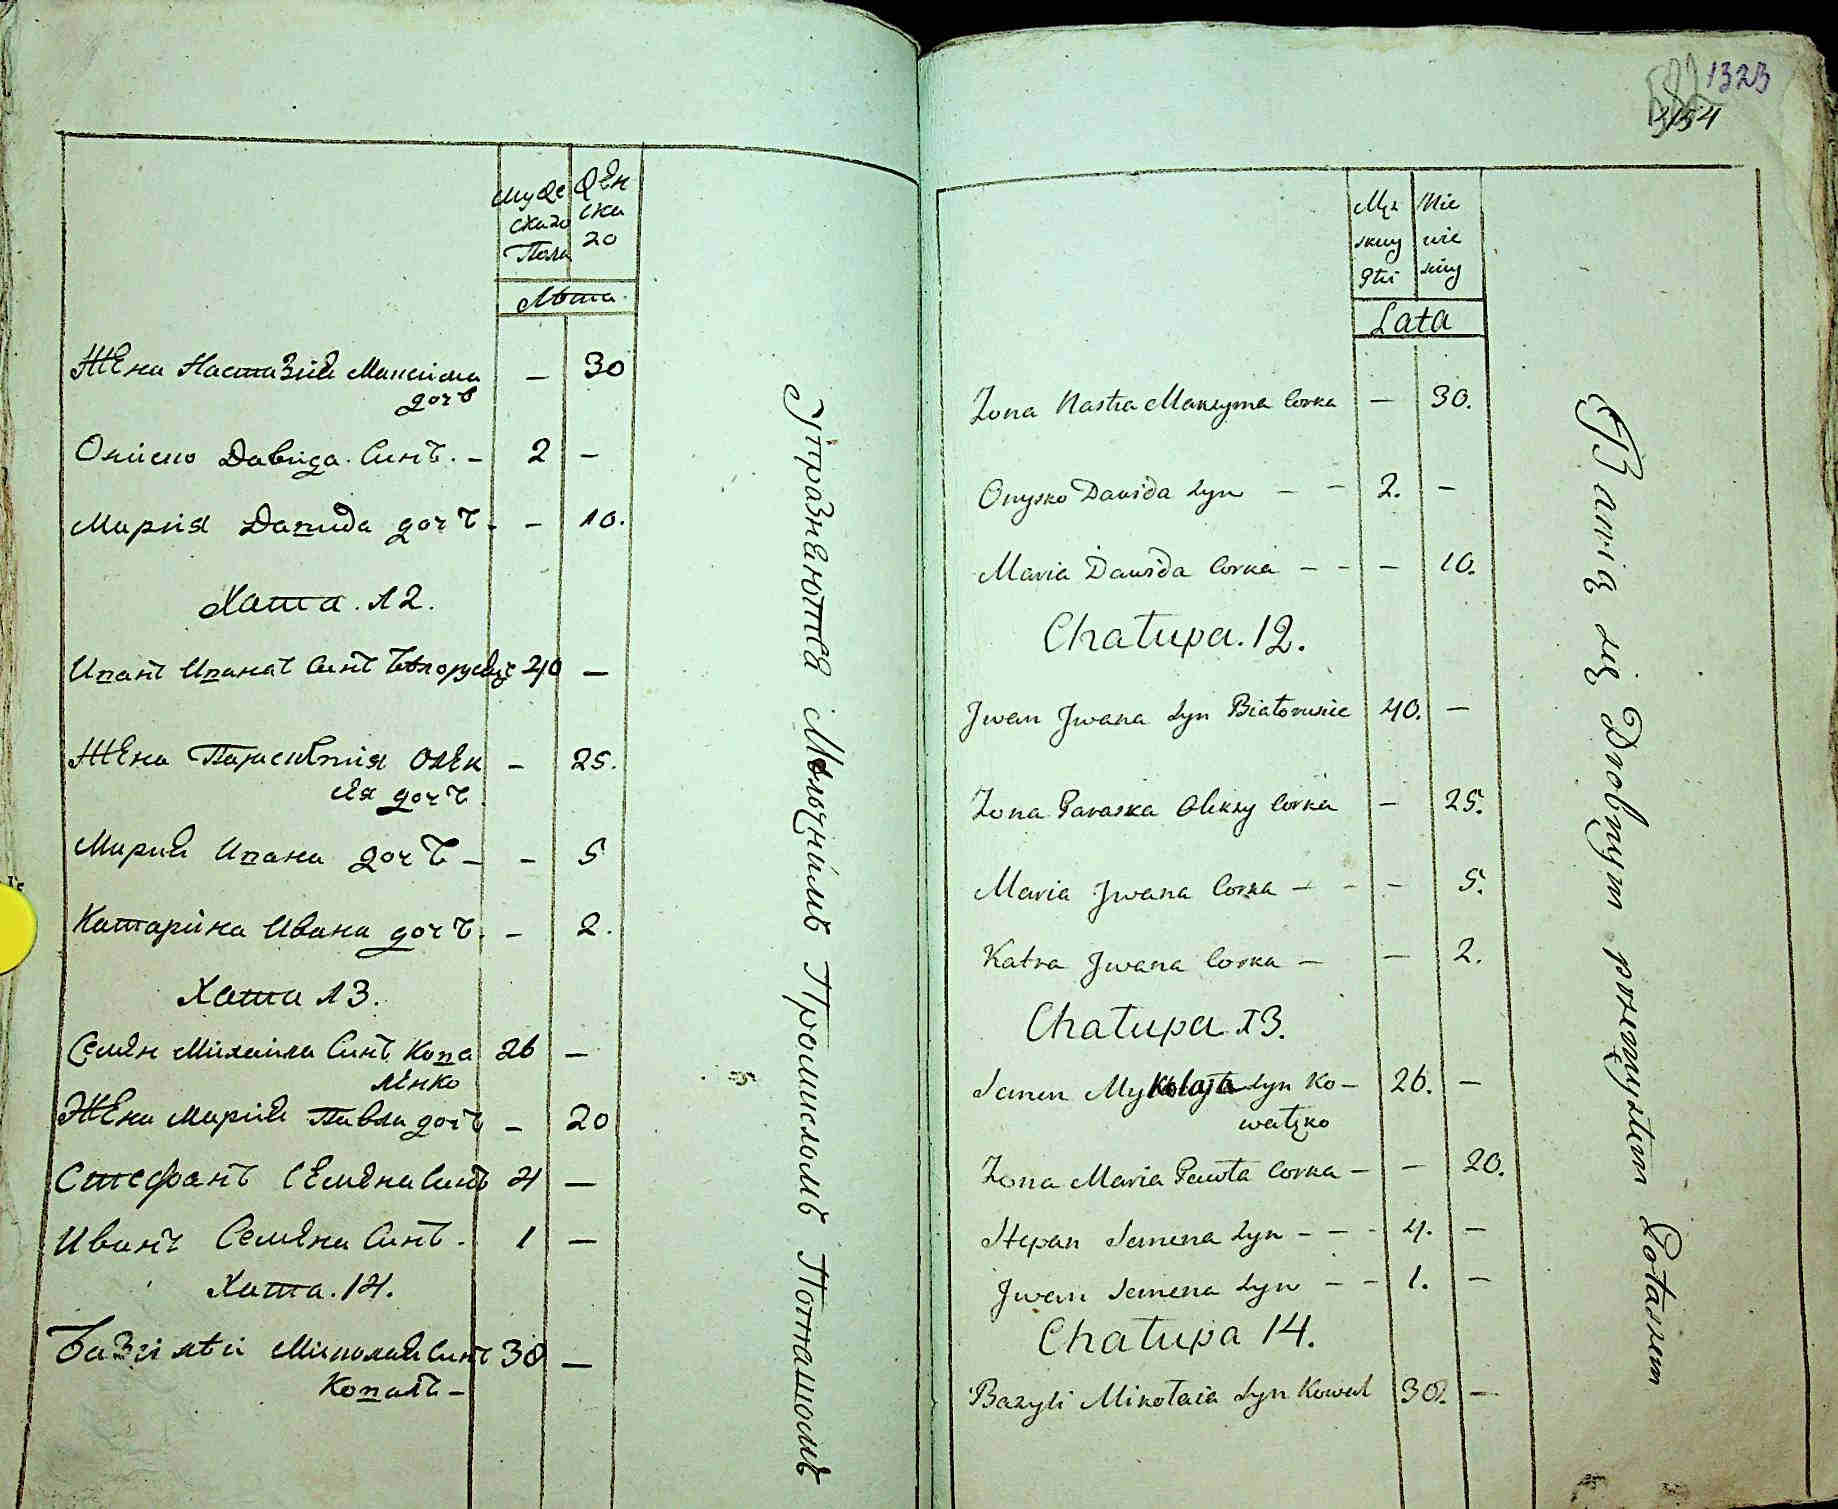 Муже
скаго
Пола
Жен
ска
го
Лѣта
Жена Настазия Максима 30
дочь
Онiско Давида Синъ 2 –
Мария Давида дочъ – 10.
Хата. 12.
Иванъ Ивана Синъ 40 –
Жена Параскевия Олек – 25.
сея дочъ
Мария Ивана дочъ – – 5
Катаріна Ивана дочъ. – 2.
Хата 13.
Семен Міхаила Синъ Кова 26 –
ленко
Жена Мария Павла дочъ – 20
Стефанъ Семена Синъ 4 –
Иванъ Семена Синъ. 1 –
Хата. 14.
Базилѣй Миколая Синъ 30 –
Коваль –
Упражняются Мѣлочнимъ Промисломъ Поташомъ
1323
Męz
kiey
Płci
Nie
wie
sciey
Lata
Zona Nastia Maxyma Corka – 30.
Onysko Dawida Syn – – 2. –
Maria Dawida Corka – – – 10.
Chałupa. 12.
Jwan Jwana Syn 40. –
Zona Paraska Olexy Corka – 25.
Maria Jwana Corka – – – 5.
Katra Jwana Corka – – 2.
Chałupa 13.
Semen Mykołaja Syn Ko– 26. –
Zona Maria Pawła Corka – – 20.
Stepan Semena Syn – – – 4. –
Jwan Semena Syn – – 1. –
Chałupa 14.
Bazyli Mikołaia Syn Kowal 30. –
Bawią się Drobnym przemysłem Potaszem